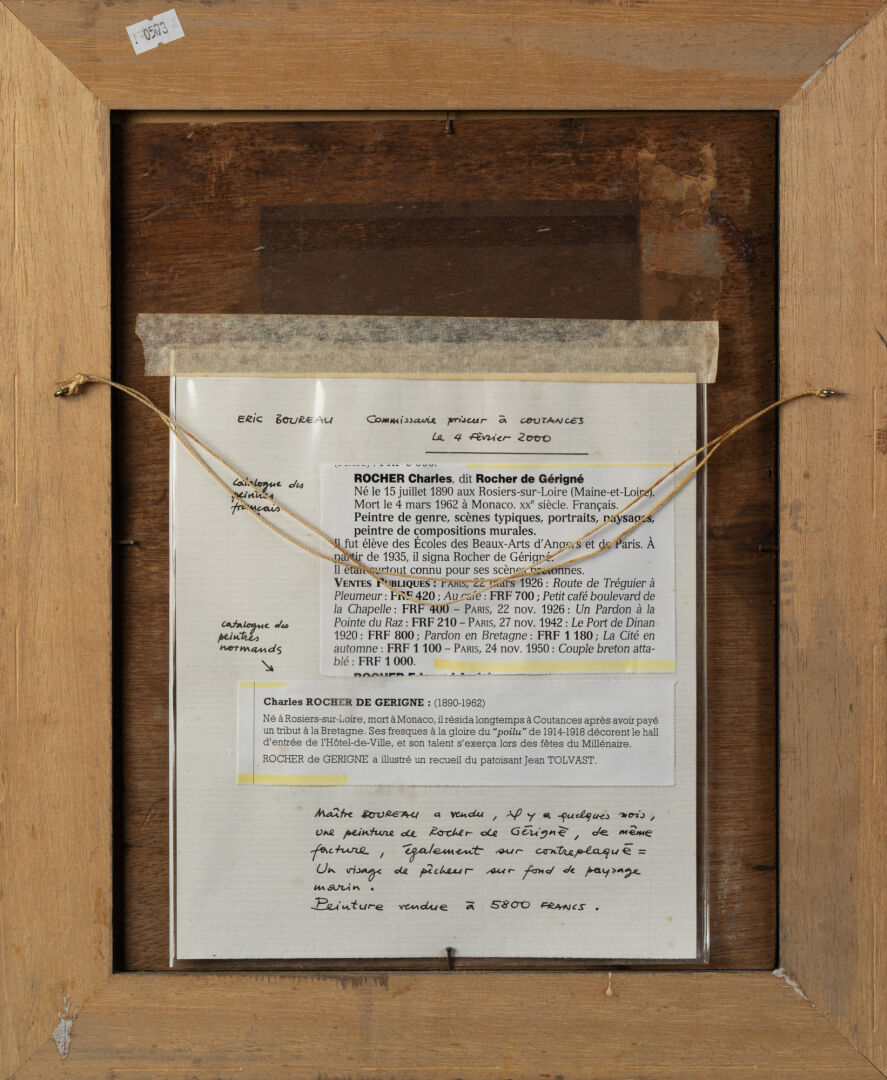 0573
ERIC BOUREAU Commissaire priseur à COUTANCES
Le 4 Février 2000
Catalogue des
peintres
français
ROCHER Charles, dit Rocher de Gérigné
Né le 15 juillet 1890 aux Rosiers-sur-Loire (Maine-et-Loire).
Mort le 4 mars 1962 à Monaco. XXe siècle. Français.
Peintre de genre, scènes typiques, portraits, paysages,
peintre de compositions murales.
Il fut élève des Écoles des Beaux-Arts d'Angers et de Paris. À
partir de 1935, il signa Rocher de Gérigné.
Il était surtout connu pour ses scènes bretonnes.
VENTES PUBLIQUES : PARIS, 22 mars 1926 : Route de Tréguier à
Pleumeur : FRF 420 ; Au café : FRF 700 ; Petit café boulevard de
la Chapelle : FRF 400 – PARIS, 22 nov. 1926 : Un Pardon à la
Pointe du Raz : FRF 210 – PARIS, 27 nov. 1942 : Le Port de Dinan
1920 : FRF 800 ; Pardon en Bretagne : FRF 1 180 ; La Cité en
automne : FRF 1 100 – PARIS, 24 nov. 1950 : Couple breton atta-
blé : FRF 1 000.
catalogue des
peintres
normands
Charles ROCHER DE GERIGNE : (1890-1962)
Né à Rosiers-sur-Loire, mort à Monaco, il résida longtemps à Coutances après avoir payé
un tribut à la Bretagne. Ses fresques à la gloire du "poilu" de 1914-1918 décorent le hall
d'entrée de l'Hôtel-de-Ville, et son talent s'exerça lors des fêtes du Millénaire.
ROCHER de GERIGNE a illustré un recueil du patoisant Jean TOLVAST.
Maître BOUREAU a vendu, il y a quelques mois,
une peinture de Rocher de Gérigné, de même
facture, également sur contreplaqué =
Un visage de pêcheur sur fond de paysage
marin.
Peinture vendue à 5800 FRANCS.